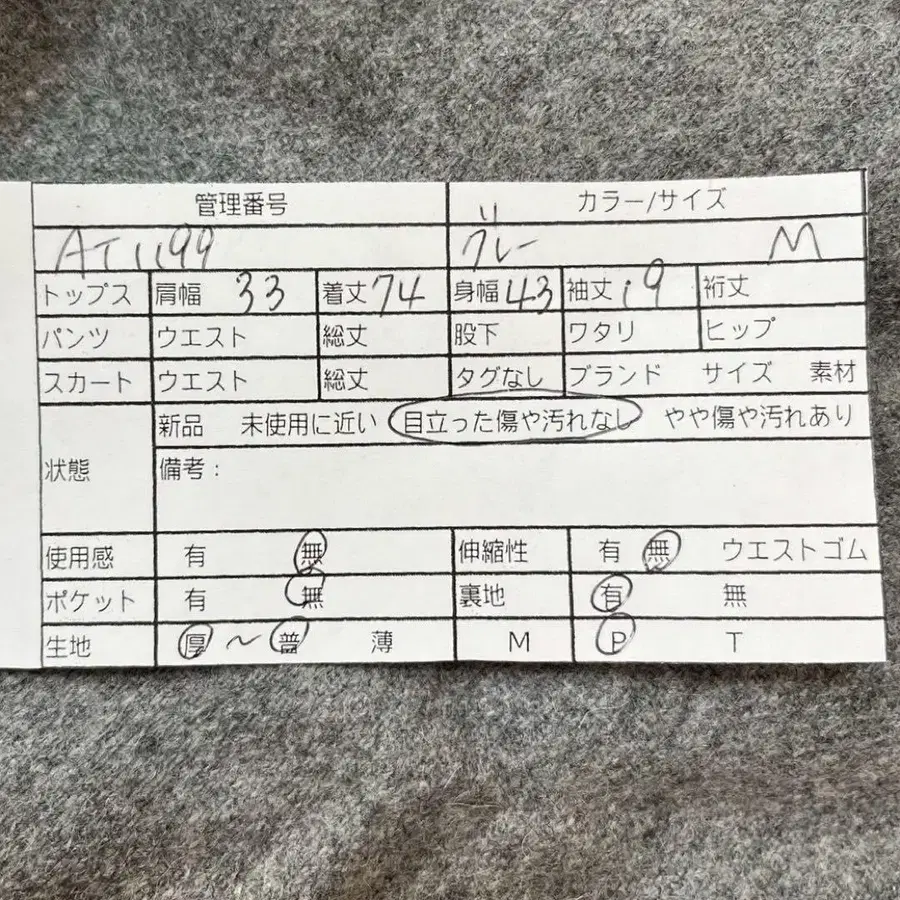 管理番号 カラー/サイズ
AT1199 グレー M
トップス 肩幅 33 着丈 74 身幅 43 袖丈 19 裄丈
パンツ ウエスト 総丈 股下 ワタリ ヒップ
スカート ウエスト 総丈 タグなし ブランド サイズ 素材
新品 未使用に近い 目立った傷や汚れなし やや傷や汚れあり
状態 備考：
使用感 有 無 伸縮性 有 無 ウエストゴム
ポケット 有 無 裏地 有 無
生地 厚 ～ 普 薄 M P T